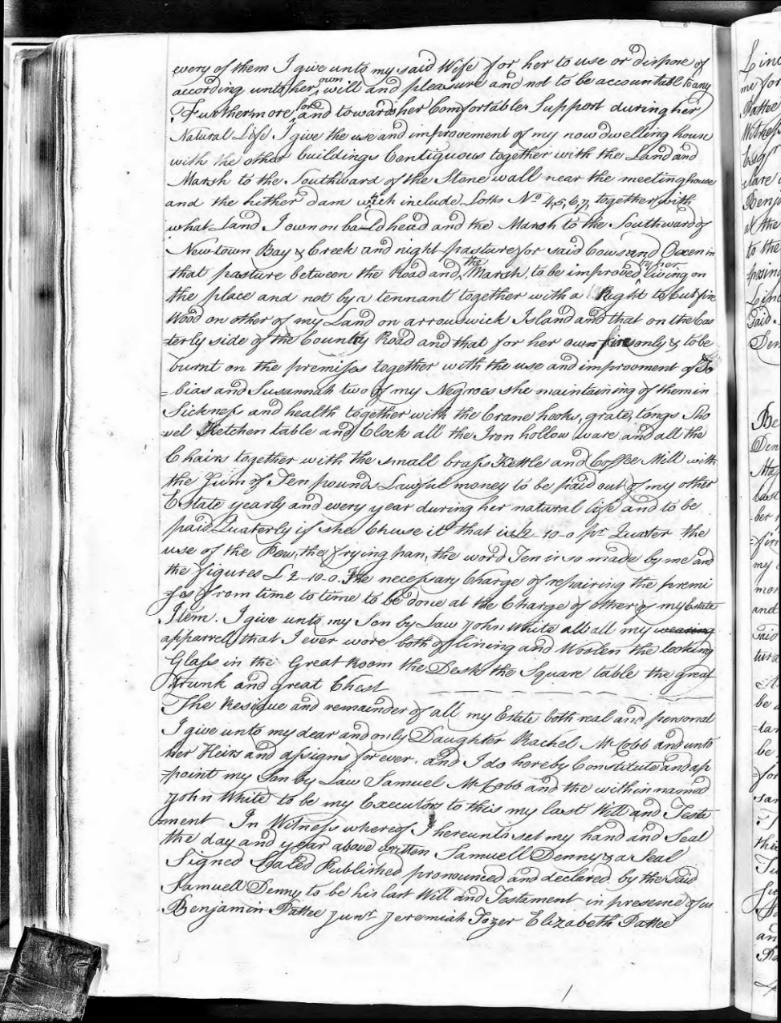 every of them I give unto my said Wife for her to use or dispose of
according unto her own will and pleasure and not to be accountable to any
Furthermore for and towards her Comfortable Support during her
Natural Life I give the use and improvement of my now dwelling house
with the other buildings Contiguous together with the Land and
Marsh to the Southward of the Stone wall near the meeting house
and the hither dam which include Lotts No 4, 5, 6, 7, together with
what Land I own on bald head and the Marsh to the Southward of
Newtown Bay & Creek and night pasture for said Cows and Oxen in
that pasture between the Road and the Marsh, to be improved by her living on
the place and not by a tennant together with a Right to Cut fire
Wood on other of my Land on arrowswick Island and that on the Eas
terly side of the Country Road and that for her own fire only & to be
burnt on the premises together with the use and improvment of To
=bias and Susannah two of my Negroes she maintaining of them in
Sickness and health together with the Crane hooks, grate, tongs Sho
vel Ketchen table and Clock all the Iron hollow ware and all the
Chairs together with the small brass Kettle and Coffee Mill with
the Sum of Ten pounds Lawful money to be paid out of my other
Estate yearly and every year during her natural life and to be
paid Quaterly if she Chuse it that is 2-10-0 pr Quater the
use of the Pew, the frying pan, the word Ten is so made by me and
the figures £ 2-10-0. The necessary Charge of repairing the premi
ses from time to time to be done at the Charge of other of my Estate
Item. I give unto my Son by Law John White all all my wearing
apparrell that I ever wore both of lining and Woolen the looking
Glass in the Great Room the Desk the Square table the great
trunk and great Chest
The Residue and remainder of all my Estate both real and personal
I give unto my dear and only Daughter Rachel McCobb and unto
her Heirs and assigns for ever. and I do hereby Constitute and ap
=point my Son by Law Samuel McCobb and the within named
John White to be my Executors to this my last Will and Testa
ment In Witness whereof I hereunto set my hand and Seal
the day and year above written Samuell Denny & a Seal
Signed Sealed Published pronounced and declared by the said
Samuell Denny to be his last Will and Testament in presence of us
Benjamin Pattee Junr Jeremiah Tozer Elizabeth Pattee